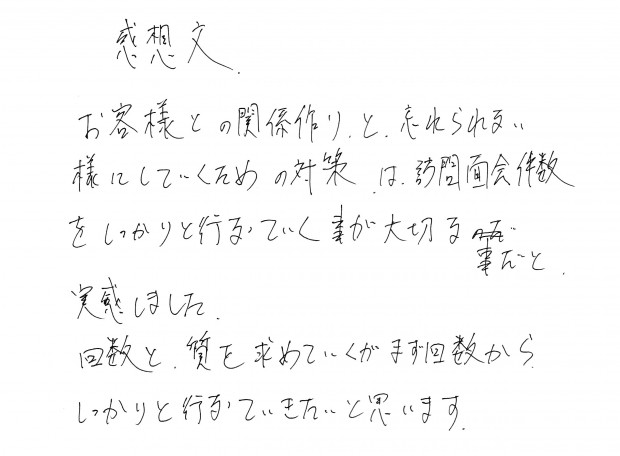 感想文.
お客様との関係作り.と.忘れられない
様にしていくための対策は.訪問面会件数
をしっかりと行なっていく事が大切な
事だと.
実感しました.
回数と.質を求めていくがまず回数から
しっかりと行なっていきたいと思います.